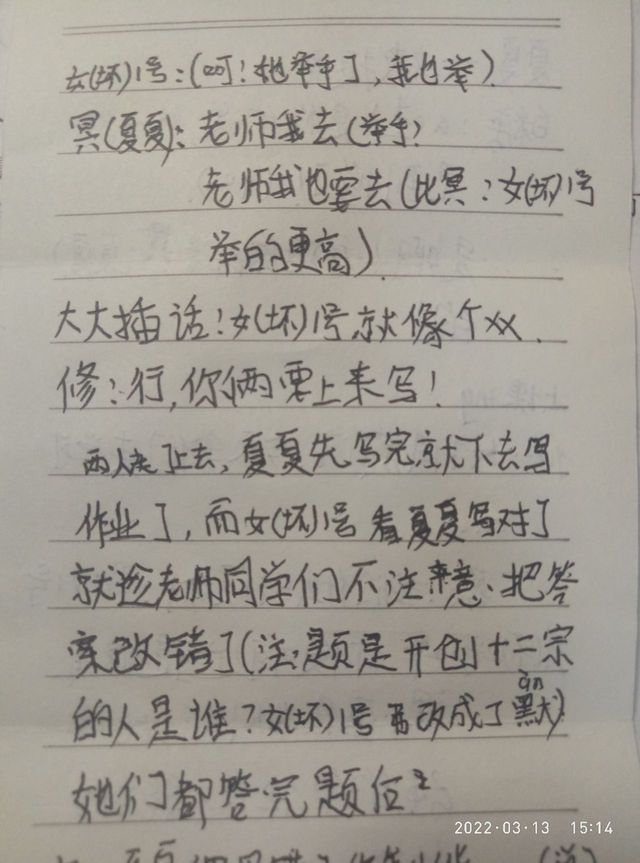 女(坏)1号:(呵!她举手了,我也举)
冥(夏夏):老师我去(举手)
老师我也要去(比冥:女(坏)1号
举的更高)
大大插话!女(坏)1号就像个xx.
修:行,你俩要上来写!
两人走了上去,夏夏先写完就下去写
作业了,而女(坏)1号看夏夏写对了
就趁老师同学们不注意、把答
案改错了(注:题是开创十二宗
的人是谁?女(坏)1号改成了默)
她们都答完题后
2022-03-13 15:14